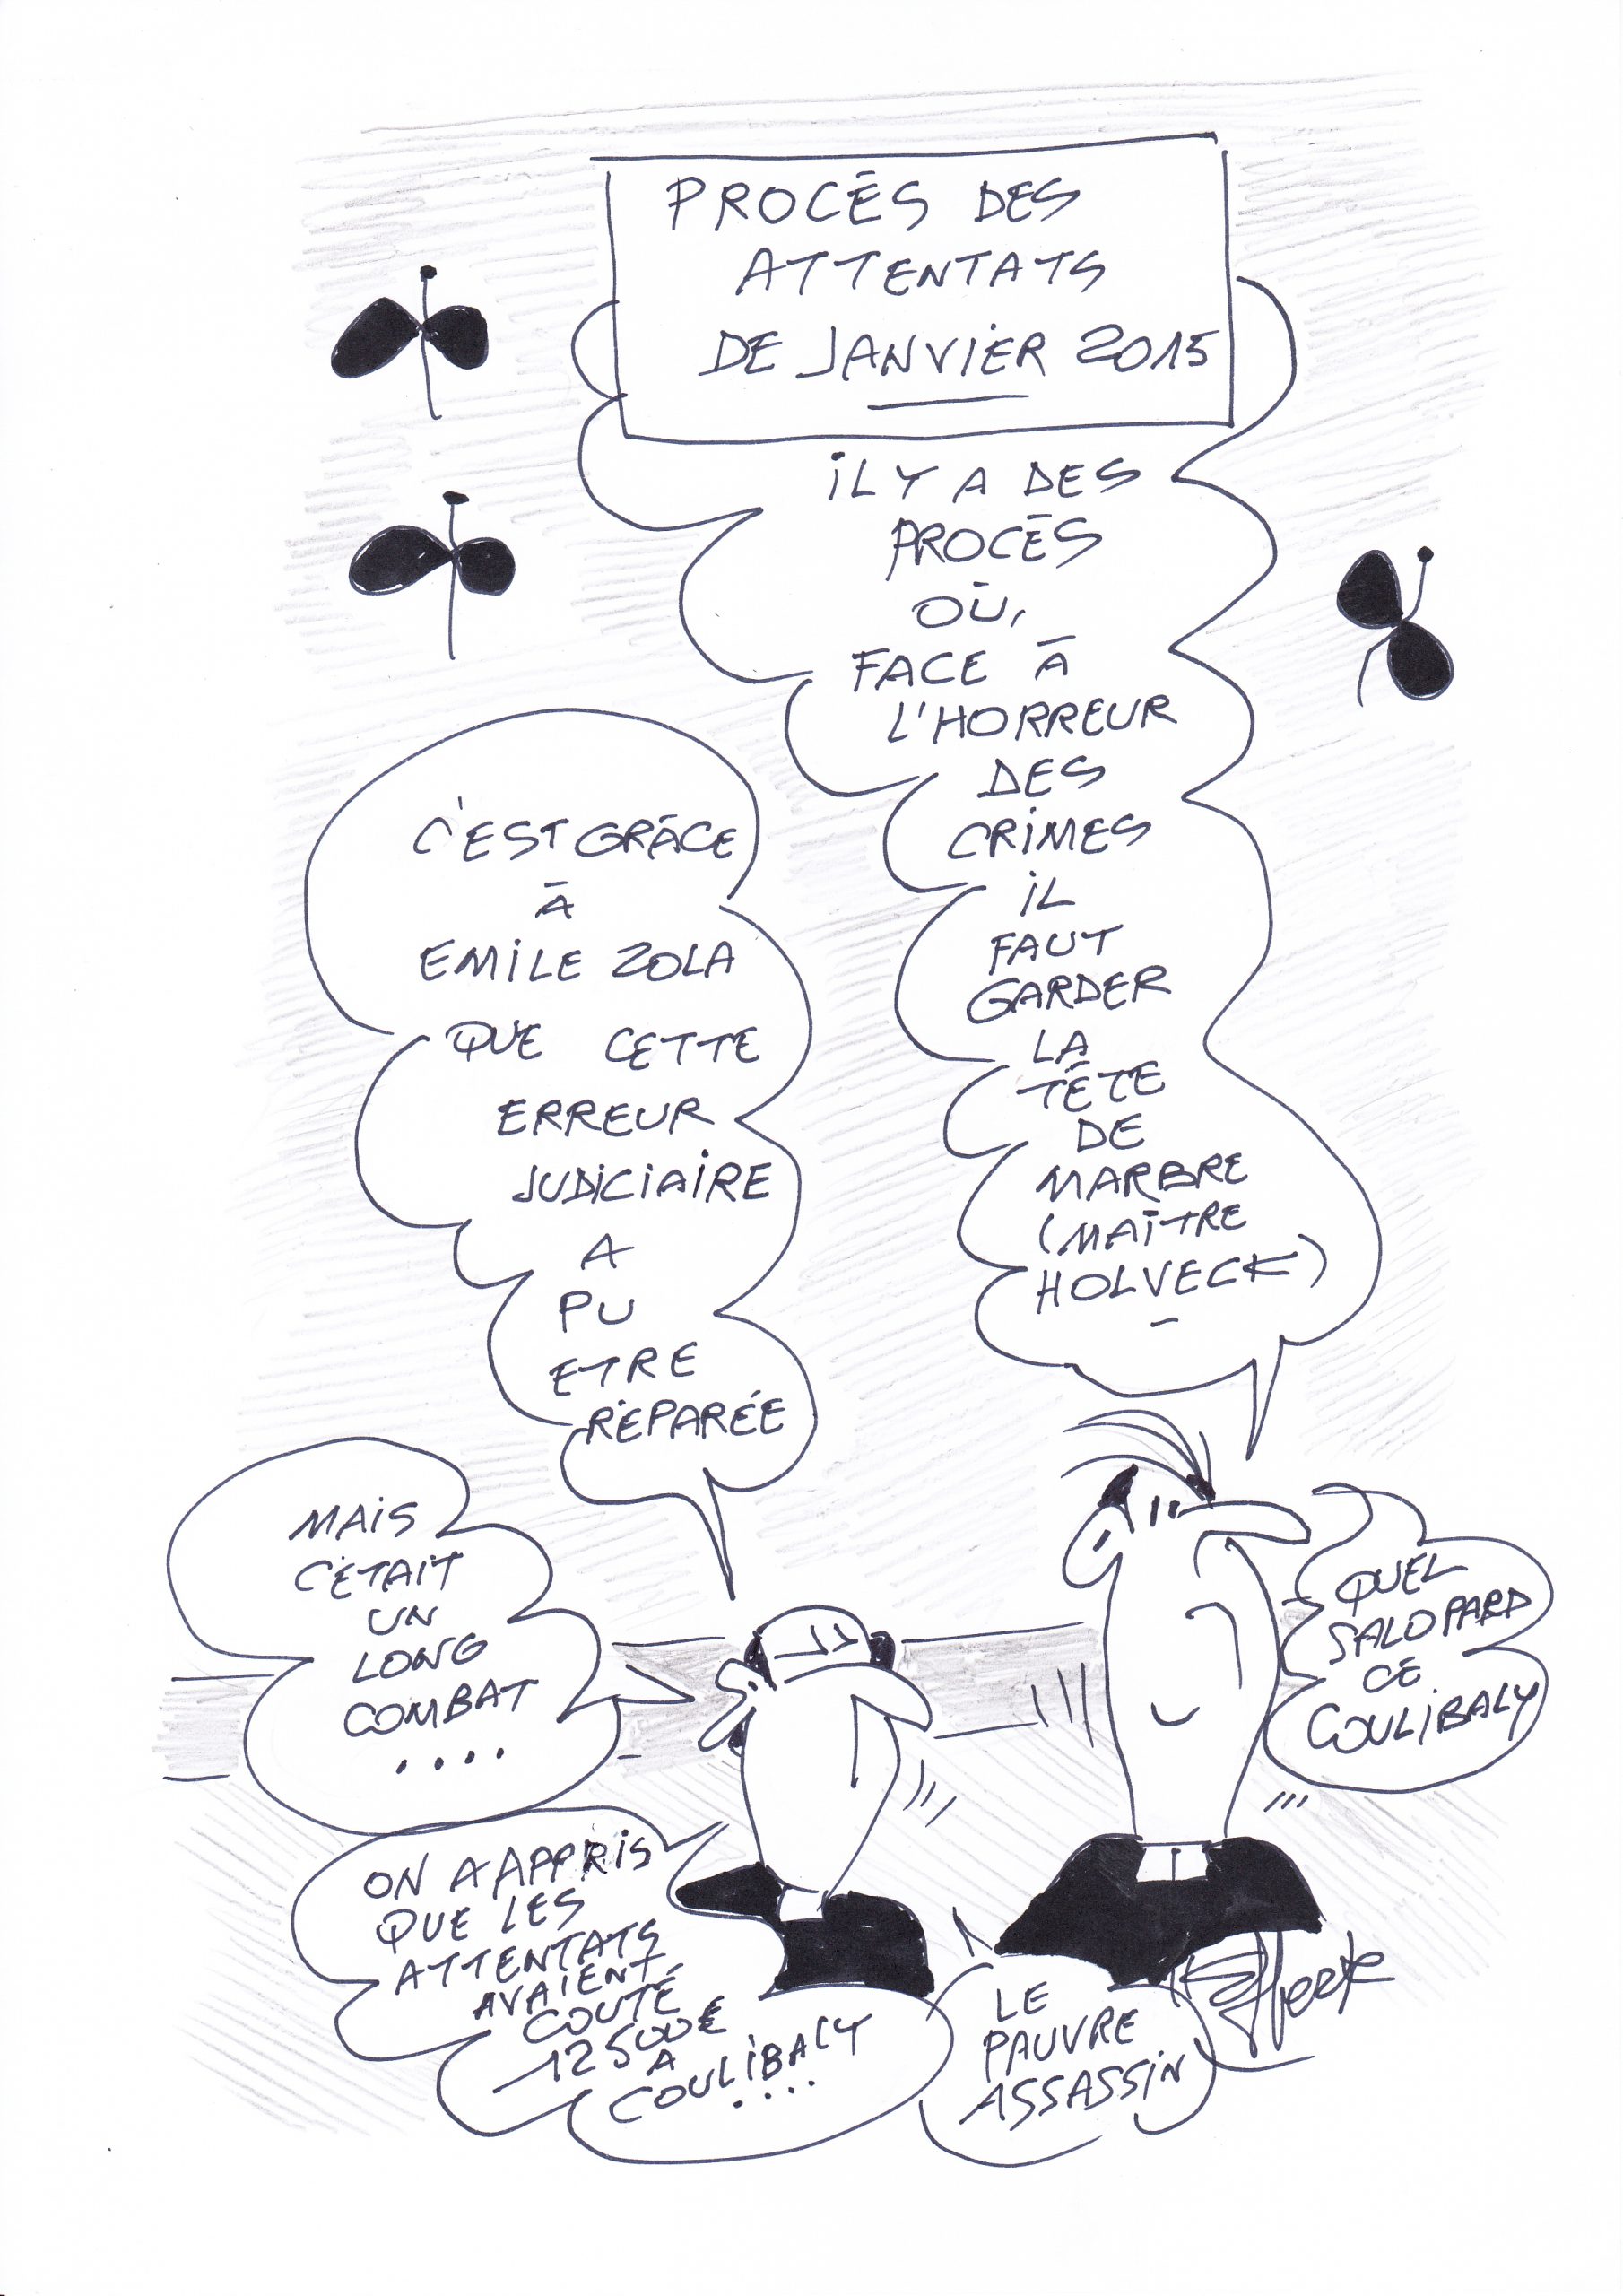 PROCÈS DES
ATTENTATS
DE JANVIER 2015
IL Y A DES
PROCÈS
OÙ,
FACE À
L'HORREUR
DES
CRIMES
IL
FAUT
GARDER
LA
TÊTE
DE
MARBRE
(MAÎTRE
HOLVECK)
C'EST GRÂCE
À
EMILE ZOLA
QUE CETTE
ERREUR
JUDICIAIRE
A
PU
ETRE
RÉPARÉE
MAIS
C'ÉTAIT
UN
LONG
COMBAT
....
QUEL
SALOPARD
CE
COULIBALY
ON A APPRIS
QUE LES
ATTENTATS
AVAIENT
COUTÉ
12500€
A
COULIBALY
....
LE
PAUVRE
ASSASSIN